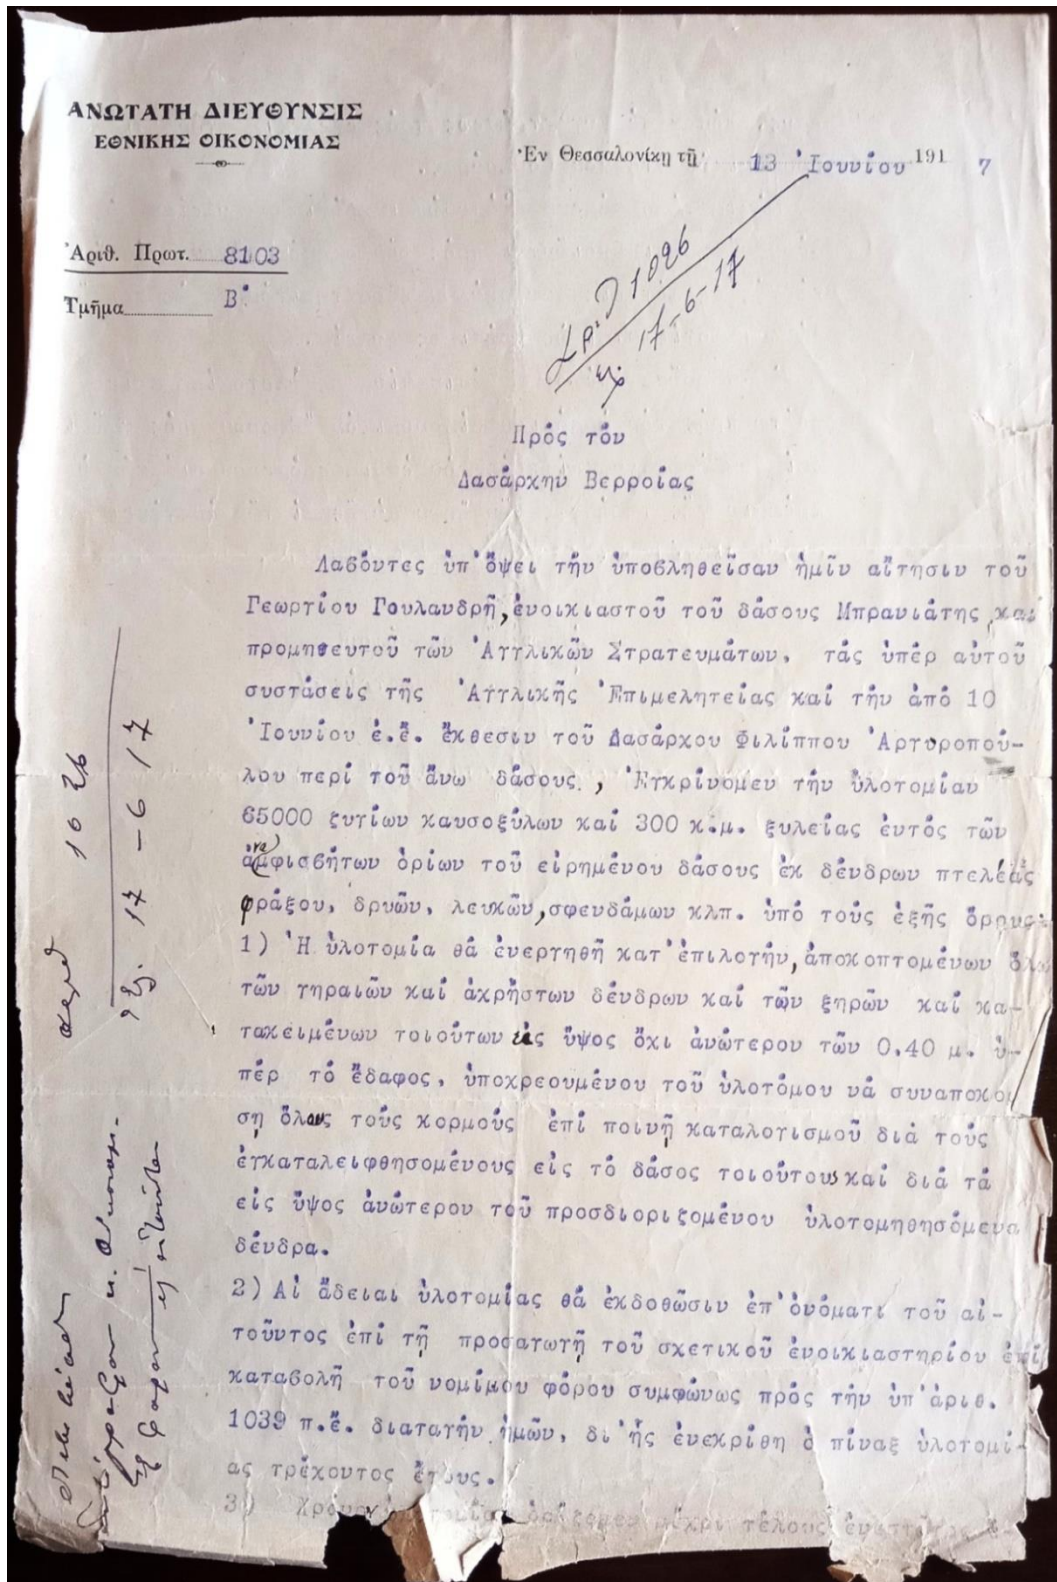 ΑΝΩΤΑΤΗ ΔΙΕΥΘΥΝΣΙΣ
ΕΘΝΙΚΗΣ ΟΙΚΟΝΟΜΙΑΣ
Ἐν Θεσσαλονίκῃ τῇ 13 Ἰουνίου 191 7
Ἀριθ. Πρωτ. 8103
Τμῆμα Β'
1026
17-6-17
Πρός τόν
Δασάρχην Βερροίας
Λαβόντες ὑπ'ὄψει τήν ὑποβληθεῖσαν ἡμῖν αἴτησιν τοῦ
Γεωργίου Γουλανδρῆ, ἐνοικιαστοῦ τοῦ δάσους Μπρανιάτης καί
προμηθευτοῦ τῶν Ἀγγλικῶν Στρατευμάτων, τάς ὑπέρ αὐτοῦ
συστάσεις τῆς Ἀγγλικῆς Ἐπιμελητείας καί τήν ἀπό 10
Ἰουνίου ἐ.ἔ. ἔκθεσιν τοῦ Δασάρχου Φιλίππου Ἀργυροπού-
λου περί τοῦ ἄνω δάσους, Ἐγκρίνομεν τήν ὑλοτομίαν
65000 ζυγίων καυσοξύλων καί 300 κ.μ. ξυλείας ἐντός τῶν
ἀναμφισβήτων ὁρίων τοῦ εἰρημένου δάσους ἐκ δένδρων πτελέας
φράξου, δρυῶν, λευκῶν, σφενδάμων κλπ. ὑπό τούς ἑξῆς ὅρους:
1) Ἡ ὑλοτομία θά ἐνεργηθῆ κατ'ἐπιλογήν, ἀποκοπτομένων ὅλων
τῶν γηραιῶν καί ἀχρήστων δένδρων καί τῶν ξηρῶν καί κα-
τακειμένων τοιούτων εἰς ὕψος ὄχι ἀνώτερον τῶν 0.40 μ. ὑ-
πέρ τό ἔδαφος, ὑποχρεουμένου τοῦ ὑλοτόμου νά συναποκο
ση ὅλους τούς κορμούς ἐπί ποινῇ καταλογισμοῦ διά τούς
ἐγκαταλειφθησομένους εἰς τό δάσος τοιούτους καί διά τά
εἰς ὕψος ἀνώτερον τοῦ προσδιοριζομένου ὑλοτομηθησόμενα
δένδρα.
2) Αἱ ἄδειαι ὑλοτομίας θά ἐκδοθῶσιν ἐπ'ὀνόματι τοῦ αἰ-
τοῦντος ἐπί τῇ προσαγωγῇ τοῦ σχετικοῦ ἐνοικιαστηρίου ἐπί
καταβολῆ τοῦ νομίμου φόρου συμφώνως πρός τήν ὑπ'ἀριθ.
1039 π.ἔ. διαταγήν ἡμῶν, δι'ἧς ἐνεκρίθη ὁ πίναξ ὑλοτομί-
ας τρέχοντος ἔτους.
3) ὁρίζομεν μέχρι τέλους
1026
17-6-17